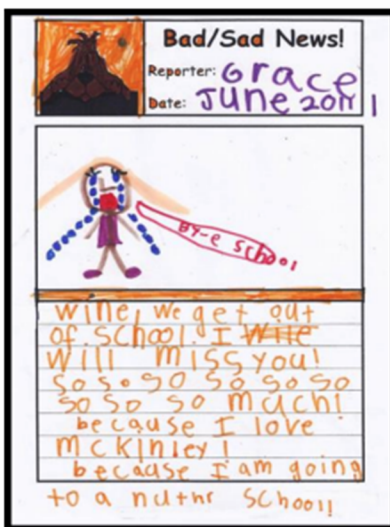 Bad/Sad News!
Reporter: Grace
Date: June 2011
By-e School
wine, we get out
of school. I wile
will miss you!
so so so so so so
so so so much!
because I love
mckinley!
because I am going
to a nuthr school!